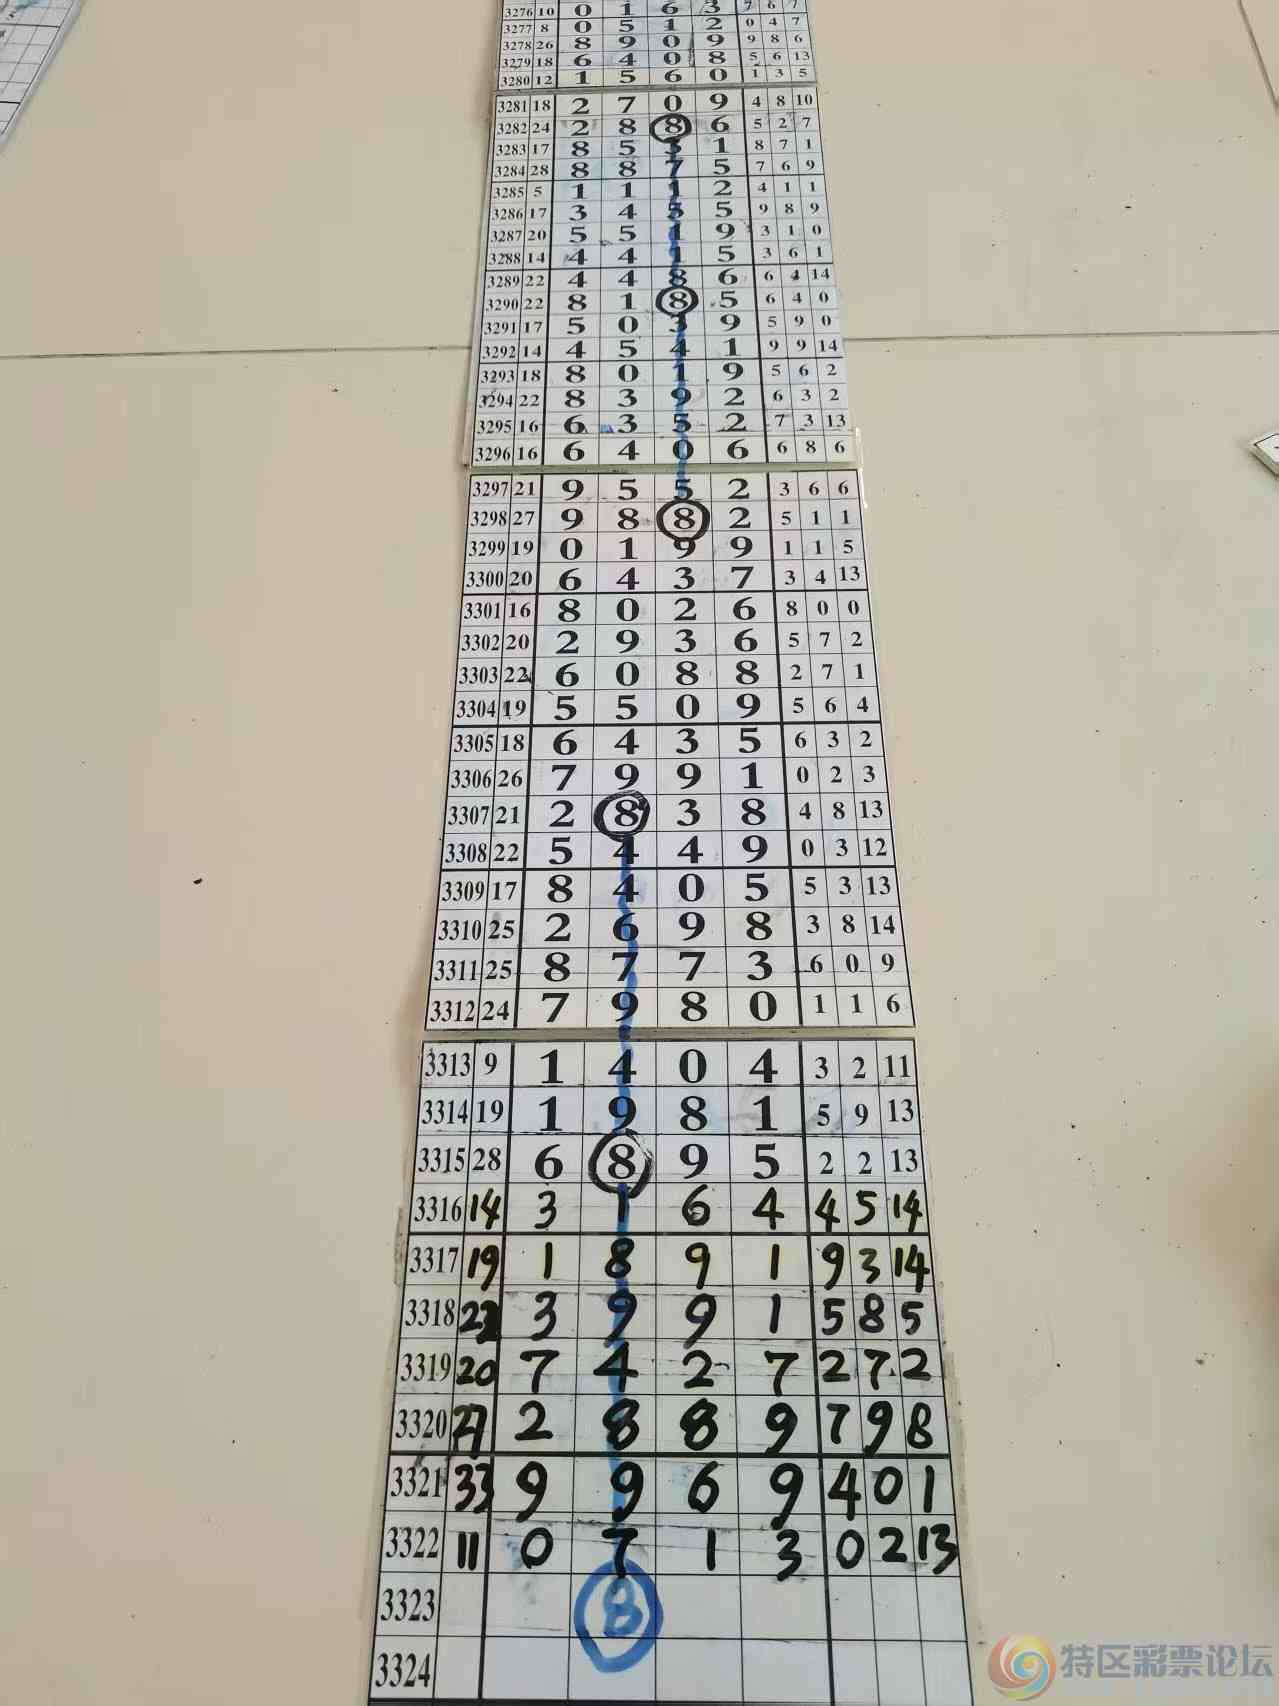 3276 10 0 1 6 3 7 6 7
3277 8 0 5 1 2 0 4 7
3278 26 8 9 0 9 9 8 6
3279 18 6 4 0 8 5 6 13
3280 12 1 5 6 0 1 3 5
3281 18 2 7 0 9 4 8 10
3282 24 2 8 8 6 5 2 7
3283 17 8 5 3 1 8 7 1
3284 28 8 8 7 5 7 6 9
3285 5 1 1 1 2 4 1 1
3286 17 3 4 5 5 9 8 9
3287 20 5 5 1 9 3 1 0
3288 14 4 4 1 5 3 6 1
3289 22 4 4 8 6 6 4 14
3290 22 8 1 8 5 6 4 0
3291 17 5 0 3 9 5 9 0
3292 14 4 5 4 1 9 9 14
3293 18 8 0 1 9 5 6 2
3294 22 8 3 9 2 6 3 2
3295 16 6 3 5 2 7 3 13
3296 16 6 4 0 6 6 8 6
3297 21 9 5 5 2 3 6 6
3298 27 9 8 8 2 5 1 1
3299 19 0 1 9 9 1 1 5
3300 20 6 4 3 7 3 4 13
3301 16 8 0 2 6 8 0 0
3302 20 2 9 3 6 5 7 2
3303 22 6 0 8 8 2 7 1
3304 19 5 5 0 9 5 6 4
3305 18 6 4 3 5 6 3 2
3306 26 7 9 9 1 0 2 3
3307 21 2 8 3 8 4 8 13
3308 22 5 4 4 9 0 3 12
3309 17 8 4 0 5 5 3 13
3310 25 2 6 9 8 3 8 14
3311 25 8 7 7 3 6 0 9
3312 24 7 9 8 0 1 1 6
3313 9 1 4 0 4 3 2 11
3314 19 1 9 8 1 5 9 13
3315 28 6 8 9 5 2 2 13
3316 14 3 1 6 4 4 5 14
3317 19 1 8 9 1 9 3 14
3318 22 3 9 9 1 5 8 5
3319 20 7 4 2 7 2 7 2
3320 27 2 8 8 9 7 9 8
3321 33 9 9 6 9 4 0 1
3322 11 0 7 1 3 0 2 13
3323 8
3324
特区彩票论坛